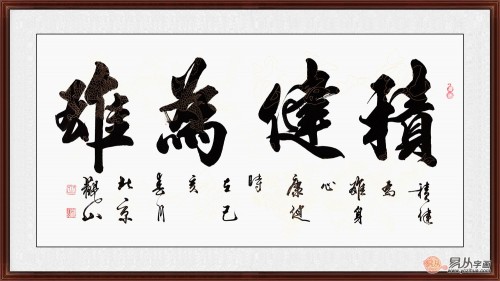 積健為雄
積健
為
雄身
心
康健
時
在己
亥
春月
北京
易从字画